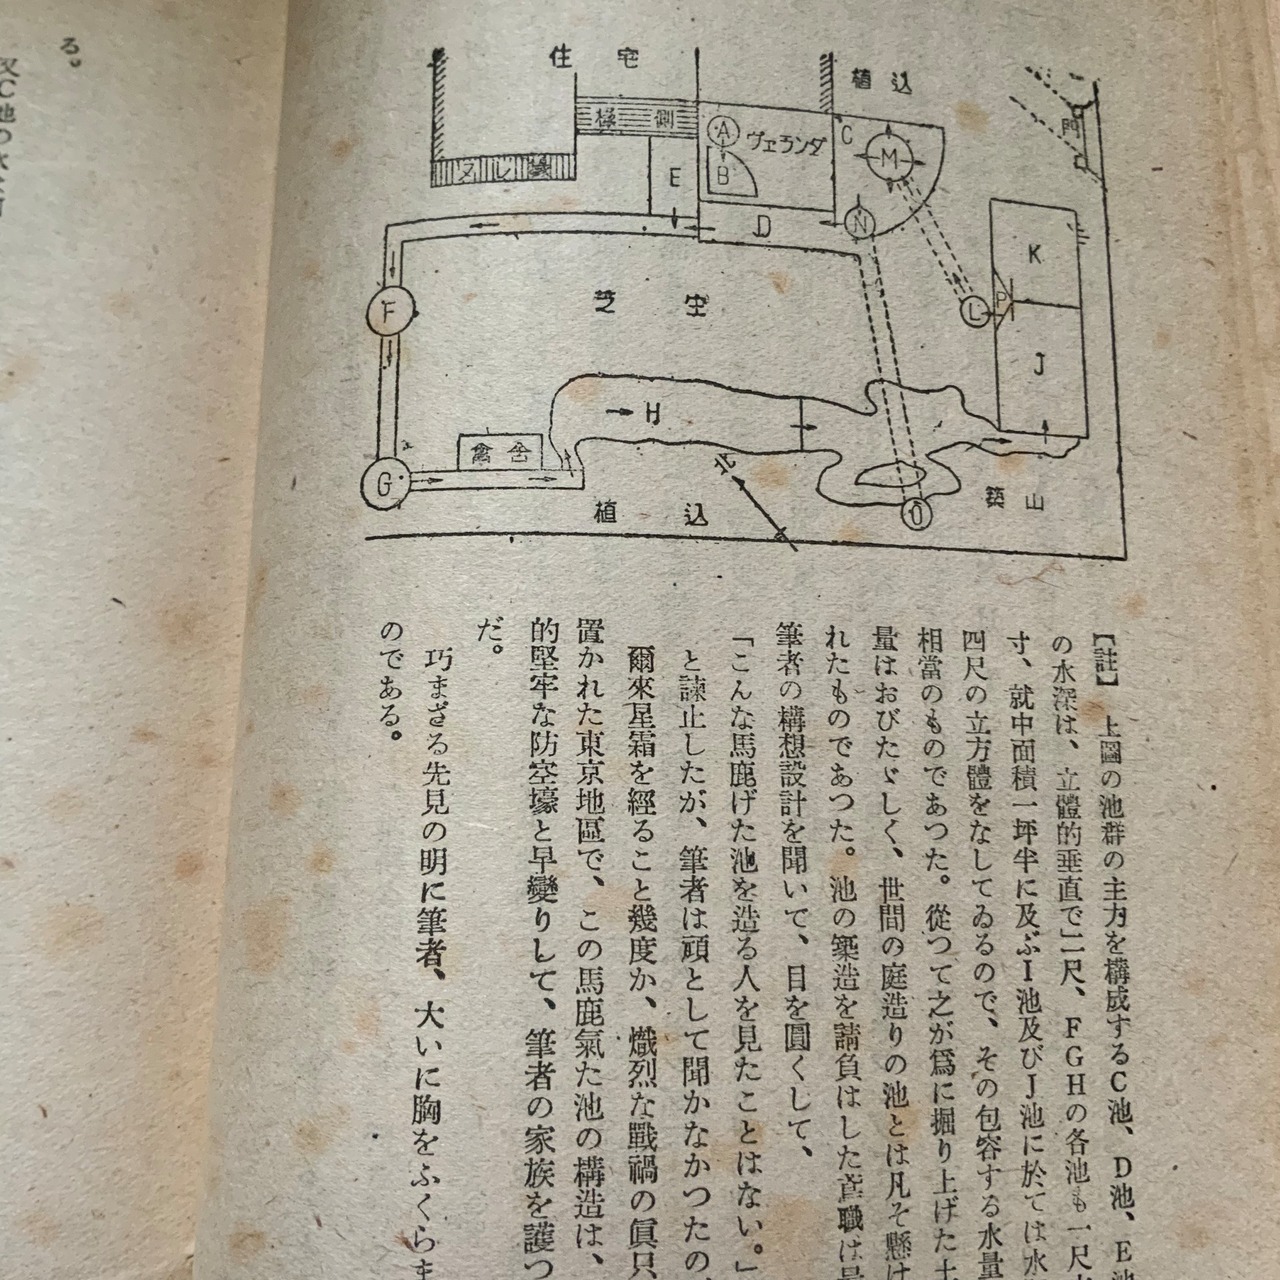 住宅
植込
門
椽側
ヴェランダ
A
B
C
D
E
M
N
K
L
P
J
F
芝生
H
G
禽舍
北
植込
O
築山
【註】 上圖の池群の主力を構成するC池、D池、E池
の水深は、立體的垂直で二尺、FGHの各池も一尺
寸、就中面積一坪半に及ぶI池及びJ池に於ては水
四尺の立方體をなしてゐるので、その包容する水量
相當のものであつた。從つて之が爲に掘り上げた土
量はおびたゞしく、世間の庭造りの池とは凡そ懸け
れたものであつた。池の築造を請負はした鳶職は
筆者の構想設計を聞いて、目を圓くして、
「こんな馬鹿げた池を造る人を見たことはない。」
と諫止したが、筆者は頑として聞かなかつたの
爾來星霜を經ること幾度か、熾烈な戰禍の眞只
置かれた東京地區で、この馬鹿氣た池の構造は、
的堅牢な防空壕と早變りして、筆者の家族を護つ
だ。
巧まざる先見の明に筆者、大いに胸をふくらま
のである。
る。
又C池の水